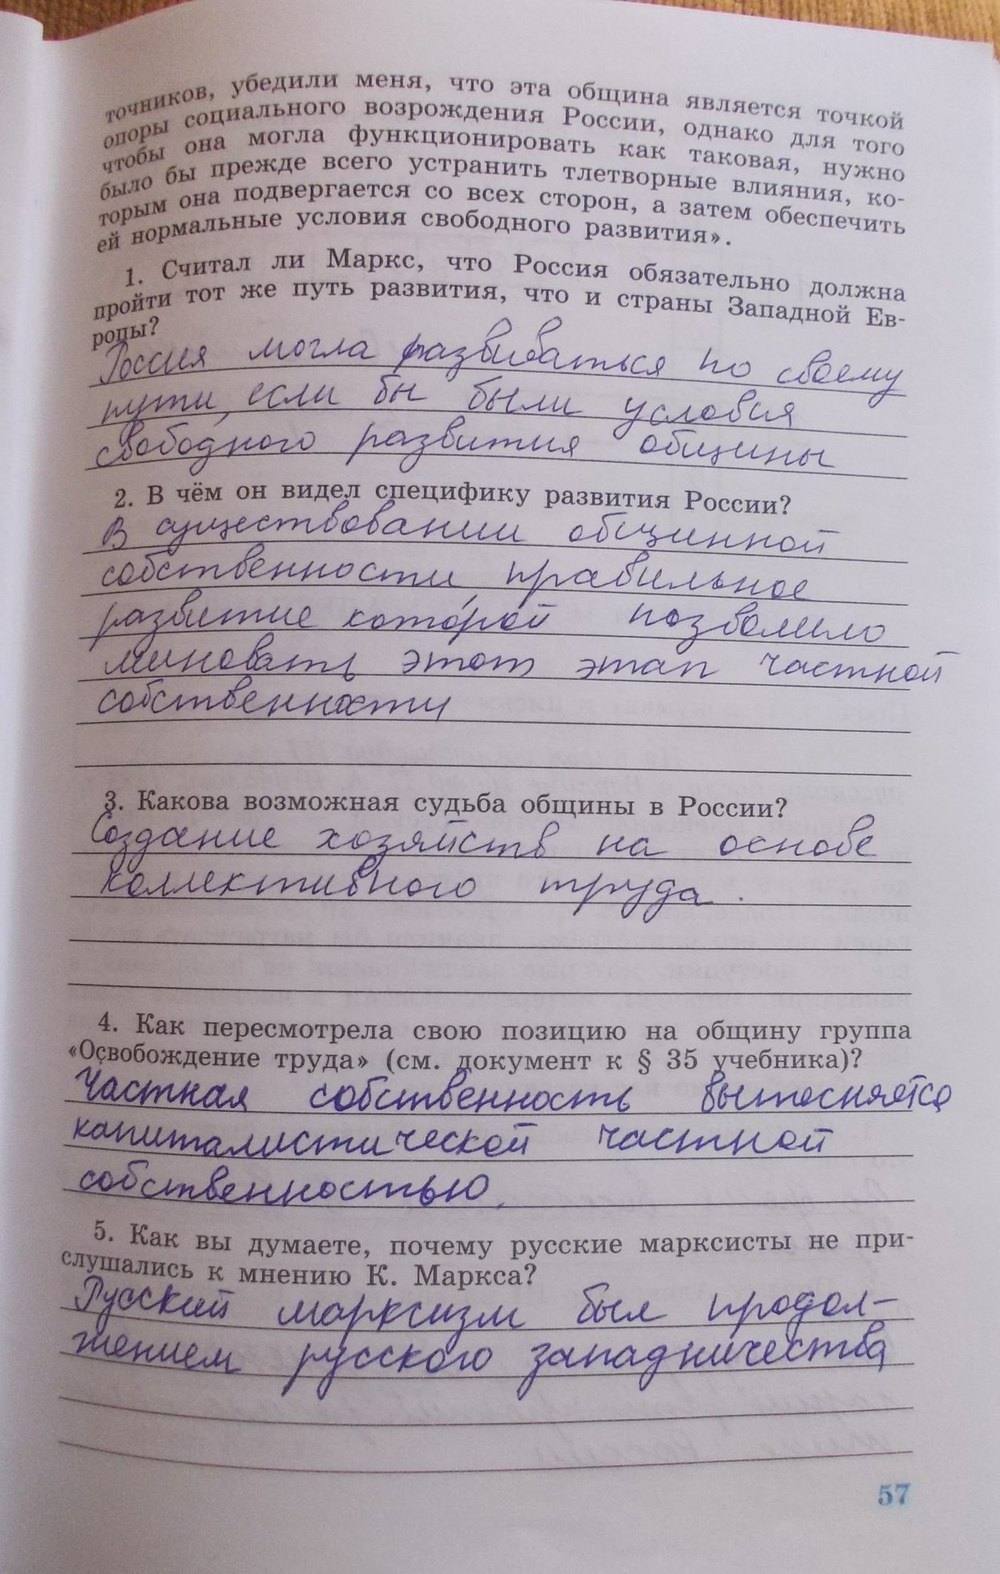 точников, убедили меня, что эта община является точкой
опоры социального возрождения России, однако для того
чтобы она могла функционировать как таковая, нужно
было бы прежде всего устранить тлетворные влияния, ко-
торым она подвергается со всех сторон, а затем обеспечить
ей нормальные условия свободного развития».
1. Считал ли Маркс, что Россия обязательно должна
пройти тот же путь развития, что и страны Западной Ев-
ропы?
Россия могла развиваться по своему
пути, если бы были условия
свободного развития общины
2. В чём он видел специфику развития России?
В существовании общинной
собственности, правильное
развитие которой позволило
миновать этот этап частной
собственности
3. Какова возможная судьба общины в России?
Создание хозяйств на основе
коллективного труда.
4. Как пересмотрела свою позицию на общину группа
«Освобождение труда» (см. документ к § 35 учебника)?
Частная собственность вытесняется
капиталистической частной
собственностью.
5. Как вы думаете, почему русские марксисты не при-
слушались к мнению К. Маркса?
Русский марксизм был продол-
жением русского западничества
57